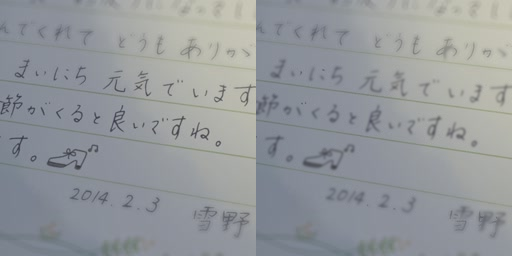 んでくれて どうも ありが
まいにち 元気でいます
節がくると良いですね。
す。
2014.2.3
雪野
んでくれて どうも ありが
まいにち 元気でいます
節がくると良いですね。
す。
2014.2.3
雪野